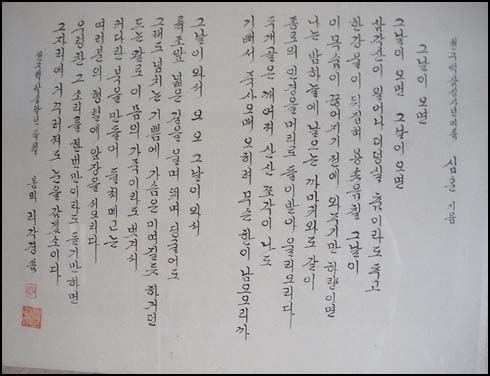 심훈 지음
그날이 오면
그날이 오면 그날이 오면
삼각산이 일어나 더덩실 춤이라도 추고
한강물이 뒤집혀 용솟음칠 그날이
이 목숨이 끊어지기 전에 와 주기만 하량이면
나는 밤하늘에 날으는 까마귀와도 같이
종로의 인경을 머리로 들이받아 울리오리다
두개골은 깨어져 산산 조각이 나도
기뻐서 죽사오매 오히려 무슨 한이 남으오리까
그날이 와서 오 오 그날이 와서
륙조앞 넓은 길을 울며 뛰며 딩굴어도
그래도 넘치는 기쁨에 가슴은 미여질듯 하거던
드는 칼로 이 몸의 가죽이라도 벗겨서
커다란 북을 만들어 들쳐메고는
여러분의 행렬에 앞장을 서오리다
우렁찬 그 소리를 한번만이라도 듣기만 하면
그자리에 거꾸러져도 눈을 감겠소이다
봄뫼 리각경 씀